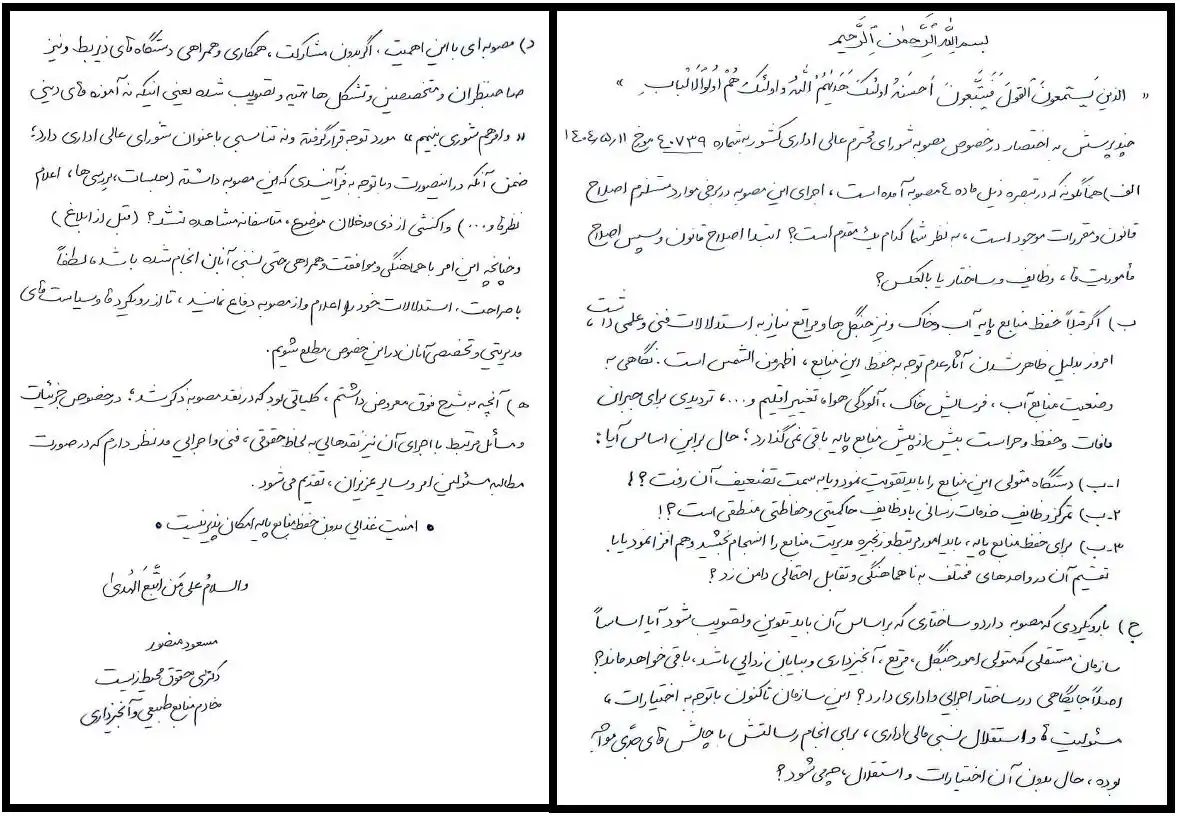 بسم الله الرحمن الرحیم
« الذین یَستمعونَ القولَ فَیَتَّبِعونَ اَحسَنَهُ اولئکَ هَدَیهُمُ اللّهُ و اولئکَ هُم اُولُوا الاَلباب »
چند پرسش به اختصار در خصوص مصوبه شورای محترم عالی اداری کشور به شماره ۴۰۷۳۹ مورخ ۱۴۰۴٫۵٫۱۱
الف) همانگونه که در تبصره ذیل ماده ۴ مصوبه آمده است ، اجرای این مصوبه در برخی موارد مستلزم اصلاح
قانون و مقررات موجود است ، به نظر شما کدام یک مقدم است؟ ابتدا اصلاح قانون و سپس اصلاح
مأموریت ها ، وظایف و ساختار یا بالعکس؟
ب) اگر قبلاً حفظ منابع پایه آب و خاک و نیز جنگل ها و مراتع نیاز به استدلالات فنی و علمی داشت ،
امروز بدلیل ظاهر شدن آثار عدم توجه به حفظ این منابع ، اظهر من الشمس است . نگاهی به
وضعیت منابع آب ، فرسایش خاک ، آلودگی هوا ، تغییر اقلیم و ... ، تردیدی برای جبران
مافات و حفظ و حراست بیش از پیش منابع پایه باقی نمی گذارد ؛ حال بر این اساس آیا :
۱-ب) دستگاه متولی این منابع را باید تقویت نمود و یا به سمت تضعیف آن رفت ؟!
۲-ب) تمرکز وظایف خدمات رسانی با وظایف حاکمیتی و حفاظتی منطقی است ؟!
۳-ب) برای حفظ منابع پایه ، باید امور مرتبط و زنجیره مدیریت منابع را انسجام بخشید و هم افزا نمود یا با
تقسیم آن در واحدهای مختلف به ناهماهنگی و تقابل احتمالی دامن زد ؟
ج) با رویکردی که مصوبه دارد و ساختاری که بر اساس آن باید تدوین و تصویب شود آیا اساساً
سازمان مستقلی که متولی امور جنگل ، مرتع ، آبخیزداری و بیابان زدایی باشد ، باقی خواهد ماند؟
اصلاً جایگاهی در ساختار اجرایی و اداری دارد؟ این سازمان تاکنون با توجه به اختیارات ،
مسئولیت ها و استقلال نسبی مالی اداری ، برای انجام رسالتش با چالش های جدّی مواجه
بوده ، حال بدون آن اختیارات و استقلال ، چه می شود ؟
د) مصوبه ای با این اهمیت ، اگر بدون مشارکت ، همکاری و همراهی دستگاه های ذیربط و نیز
صاحبنظران و متخصصین و تشکل ها تهیه و تصویب شده یعنی اینکه نه آموزه های دینی
« و امرهم شوری بینهم » مورد توجه قرار گرفته و نه تناسبی با عنوان شورای عالی اداری دارد ؛
ضمن آنکه در اینصورت و با توجه به فرآیندی که این مصوبه داشته (جلسات ، بررسی ها ، اعلام
نظرها و ...) واکنشی از ذی مدخلان موضوع ، متأسفانه مشاهده نشد ؟ (قبل از ابلاغ)
و چنانچه این امر با هماهنگی و موافقت و همراهی حتی نسبی آنان انجام شده باشد ، لطفاً
با صراحت ، استدلالات خود را اعلام و از مصوبه دفاع نمایند ، تا از رویکردها و سیاست های
مدیریتی و تخصصی آنان در این خصوص مطلع شویم .
ه) آنچه به شرح فوق معروض داشتم ، کلیاتی بود که در نقد مصوبه ذکر شد ؛ در خصوص جزئیات
و مسائل مرتبط با اجرای آن نیز نقدهایی به لحاظ حقوقی ، فنی و اجرایی مد نظر دارم که در صورت
مطالبه مسئولین امر و سایر عزیزان ، تقدیم می شود .
• امنیت غذایی بدون حفظ منابع پایه امکان پذیر نیست •
والسلامُ علی مَن اتَّبَعَ الهُدیٰ
مسعود منصور
دکترای حقوق محیط زیست
خادم منابع طبیعی و آبخیزداری